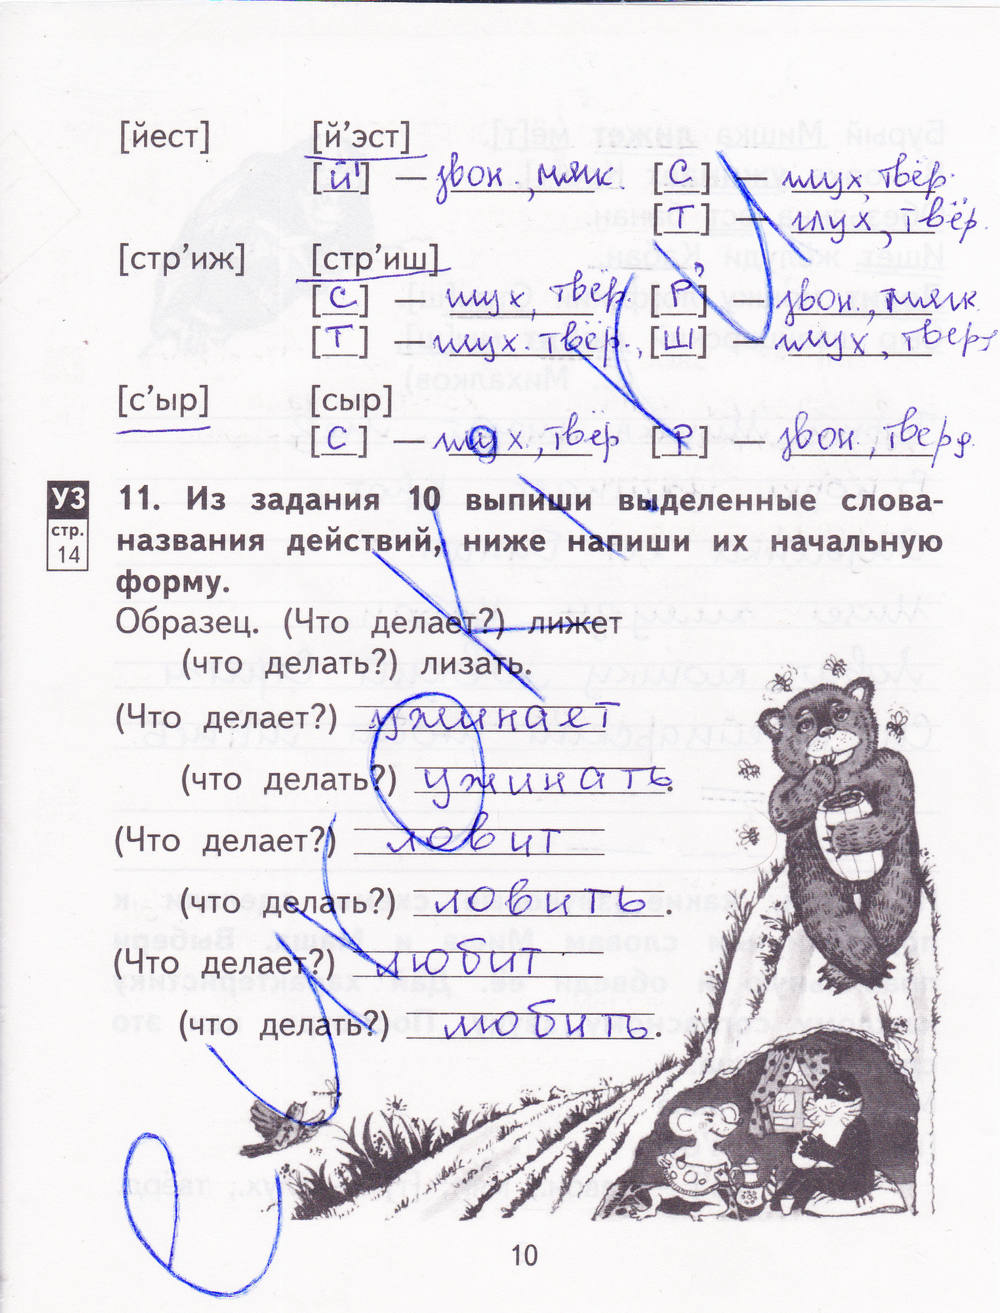 [йест] [й’эст]
[й'] – звон., мяк. [с] – глух., твёр.
[т] – глух., твёр.
[стр’иж] [стр’иш]
[с] глух., твёр. [р'] звон., мяк
[т] – глух. твёр., [ш] – глух., твер
[с’ыр] [сыр]
[с] – глух., твёр [р] звон., твер
УЗ
стр.
14
11. Из задания 10 выпиши выделенные слова-
названия действий, ниже напиши их начальную
форму.
Образец. (Что делает?) лижет
(что делать?) лизать.
(Что делает?) ужинает
(что делать?) ужинать.
(Что делает?) ловит
(что делать?) ловить.
(Что делает?) любит
(что делать?) любить.
10